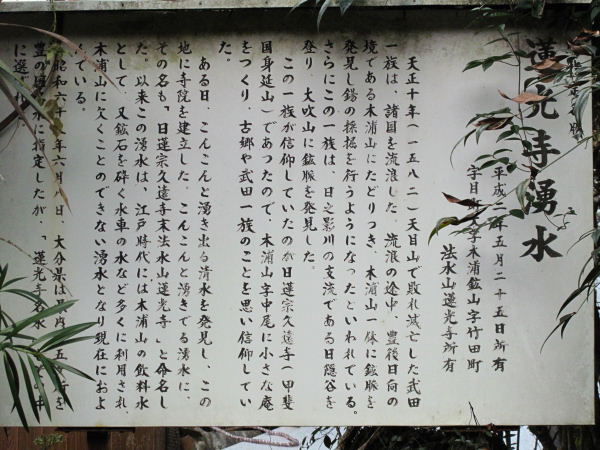 蓮光寺湧水
平成二年五月二十五日所有
字目 字木浦鉱山字竹田町
法水山蓮光寺所有
天正十年(一五八二)天目山で敗れ滅亡した武田
一族は、諸国を流浪した。流浪の途中、豊後日向の
境である木浦山にたどりつき、木浦山一体に鉱脈を
発見し錫の採掘を行うようになったといわれている。
さらにこの一族は、日之影川の支流である日隠谷を
登り、大吹山に鉱脈を発見した。
この一族が信仰していたのが日蓮宗久遠寺(甲斐
国身延山)であつたので、木浦山字中尾に小さな庵
をつくり、古郷や武田一族のことを思い信仰してい
た。
ある日、こんこんと湧き出る清水を発見し、この
地に寺院を建立した。こんこんと湧きでる湧水に、
その名も、「日蓮宗久遠寺末法水山蓮光寺」と命名し
た。以来この湧水は、江戸時代には木浦山の飲料水
として、又鉱石を砕く水車の水など多くに利用され
木浦山に欠くことのできない湧水となり現在におよ
んでいる。
昭和六十 年六月 日、大分県は県内 五ヶ所を
豊の国名水に指定したが、「蓮光寺名水」
に選ばれ